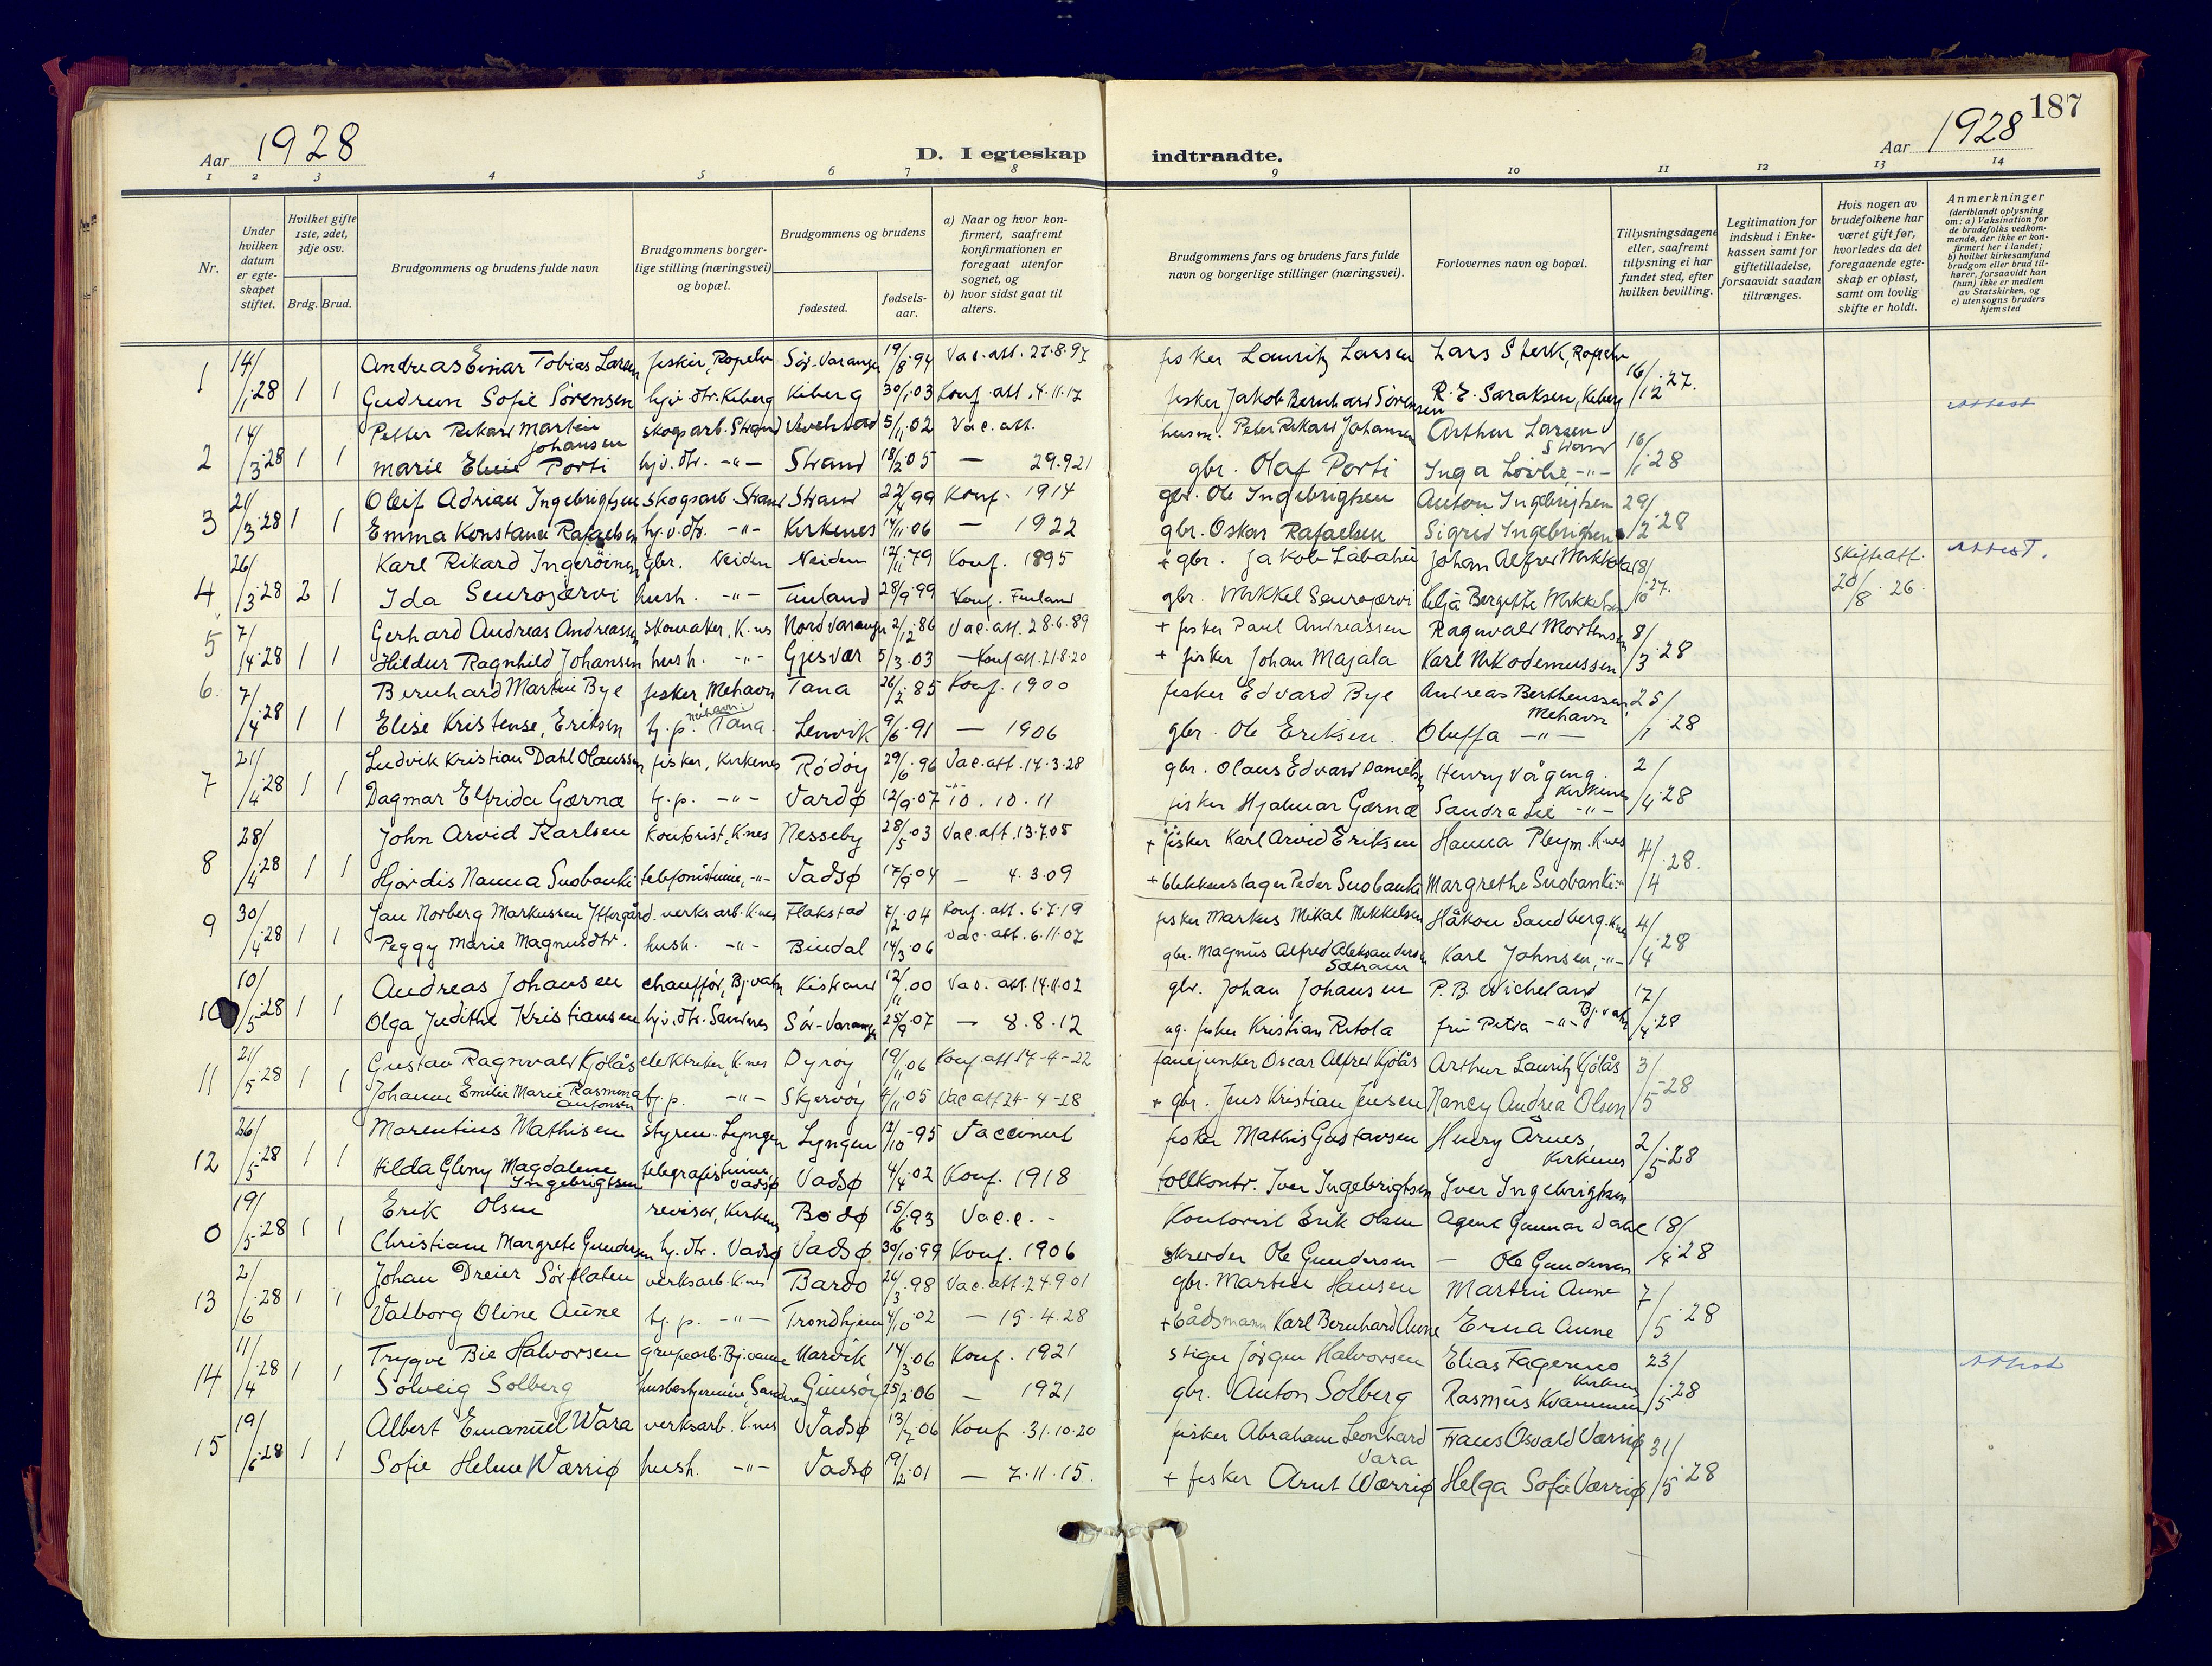 187
Aar 1928
D. I egteskap indtraadte.
Aar 1928
1 2 3 4 5 6 7 8 9 10 11 12 13 14
Nr.
Under hvilken datum er egteskapet stiftet.
Hvilket gifte 1ste, 2det, 3dje osv.
Brdg. Brud.
Brudgommens og brudens fulde navn
Brudgommens borgerlige stilling (næringsvei) og bopæl.
Brudgommens og brudens
fødested.
fødselsaar.
a) Naar og hvor konfirmert, saafremt konfirmationen er foregaat utenfor sognet, og
b) hvor sidst gaat til alters.
Brudgommens fars og brudens fars fulde navn og borgerlige stillinger (næringsvei).
Forlovernes navn og bopæl.
Tillysningsdagene eller, saafremt tillysning ei har fundet sted, efter hvilken bevilling.
Legitimation for indskud i Enkekassen samt for giftetilladelse, forsaavidt saadan tiltrænges.
Hvis nogen av brudefolkene har været gift før, hvorledes da det foregaaende egteskap er opløst, samt om lovlig skifte er holdt.
Anmerkninger (deriblandt oplysning om: a) Vaksination for de brudefolks vedkommende, der ikke er konfirmert her i landet; b) hvilket kirkesamfund brudgom eller brud tilhører, forsaavidt han (hun) ikke er medlem av Statskirken, og c) utensogns bruders hjemsted
1 14/1.28 1 1 Andreas Einar Tobias Larsen fisker, Ropelv Sør-Varanger 19/8.94 Vac.att. 27.8.97 fisker Lauritz Larsen Lars Sterk, Ropelv 16/12 27.
Gudrun Sofie Sørensen hjv. dtr. Kiberg Kiberg 30/1.03 Konf. att. 4.11.17 fisker Jakob Bernhard Sørensen R. E. Saraksen, Kiberg
Attest
2 14/3.28 1 1 Petter Rikard Martin Johansen skogsarb. Strand 5/11.02 Vac. att. husm. Peter Rikard Johansen Arthur Larsen Strand 16/1 28
Marie Elvie Porti hjv. dtr. -"- Strand 18/2.05 — 29.9.21 gbr. Olaf Porti Inga -"-
3 21/3.28 1 1 Oleif Adrian Ingebrigtsen skogsarb. Strand Strand 22/4.99 Konf. 1914 gbr. Ole Ingebrigtsen Anton Ingebrigtsen 29/2.28
Emma Konstance Rafaelsen hj.v.dtr. -"- Kirkenes 14/11.06 — 1922 gbr. Oskar Rafaelsen Sigrid Ingebrigtsen
4 26/3.28 2 1 Karl Rikard Ingerøinen gbr. Neiden Neiden 12/11.79 Konf. 1895 + gbr. Jakob Labahui Johan Alfred Mikkola 18/10 27. Skifteatt. 20/8.26. Attest.
Ida Seurojærvi hush. -"- Finland 28/9.99 Konf. Finland gbr. Mikkel Seurojærvi Bergitte Mikkelsen
5 7/4.28 1 1 Gerhard Andreas Andreassen skomaker, K.nes Nord Varanger 2/12.86 Vac. att. 28.6.89 + fisker Paul Andreassen Ragnvald Mortensen 8/3.28
Hildur Ragnhild Johansen hush. -"- Gjesvær 5/3.03 — Konf att. 21.8.20 + fisker Johan Majala Karl Nikodemussen
6. 7/4.28 1 1 Bernhard Martin Bye fisker, Mehavn Tana 26/2.85 Konf. 1900 fisker Edvard Bye Andreas Berthenssen Mehavn 25/1.28
Elise Kristense, Eriksen hj.p. Tana. Mehavn Lenvik 9/6.91 — 1906 gbr. Ole Eriksen. Oluffa -"-
7 21/4.28 1 1 Ludvik Kristian Dahl Olaussen fisker, Kirkenes Rødøy 29/6.96 Vac. att. 14.3.28 gbr. Olaus Edvard Danielsen Henry Vågeng. Kirkenes 2/4.28
Dagmar Elfrida Gærnæ hj.p. -"- Vardø 12/9.07 -"- 10.10.11 fisker Hjalmar Gærnæ Sandra Lie -"-
8 28/4.28 1 1 John Arvid Karlsen kontorist, K.nes Nesseby 28/5.03 Vac. att. 13.7.05 + fisker Karl Arvid Eriksen Hanna Pleym. K.nes 4/4.28.
Hjørdis Nanna Suobanki telefonistinne, -"- Vadsø 17/9.04 — 4.3.09 + blikkenslager Peder Suobanki Margrethe Suobanki -"-
9 30/4.28 1 1 Jan Norberg Markussen Yttergård. verksarb. K.nes Flakstad 7/2.04 Konf. att. 6.7.19 fisker Markus Mikal Mikkelsen Håkon Sandberg. K.nes 4/4.28
Peggy Marie Magnusdtr. hush. -"- Bindal 14/3.06 Vac. att. 6.11.07 gbr. Magnus Alfred Aleksandersen Sætran Karl Johnsen, -"-
10 10/5.28 1 1 Andreas Johansen chauffør, Bj.vatn Kistrand 12/11.00 Vac. att. 14.11.02 gbr. Johan Johansen P. B. Wickeland Bj.vatn 17/4.28
Olga Judithe Kristiansen hjv. dtr. Sandnes Sør-Varanger 25/9.07 — 8.8.12 ug. fisker Kristian Ritola fru Petra -"-
11 21/5.28 1 1 Gustav Ragnvald Kjølås elektriker, K.nes Dyrøy 19/11.06 Konf. att 17-4-22 fanejunker Oscar Alfred Kjølås Arthur Lauritz Kjølås 3/5-28
Johanne Emilie Marie Rasmina Antonsen hj.p. -"- Skjervøy 4/11.05 Vac att 24-4-28 + gbr. Jens Kristian Jensen Nancy Andrea Olsen
12 26/5.28 1 1 Marentius Mathisen styrm. Lyngen Lyngen 12/10-95 Vaccinert fisker Mathis Gustavsen Henry Årnes, Kirkenes 2/5-28
Hilda Gleny Magdalene Ingebrigtsen telegrafistinne, Vadsø Vadsø 4/4.02 Konf. 1918 tollkontr. Iver Ingebrigtsen Iver Ingebrigtsen
0 19/5.28 1 1 Erik Olsen revisor, Kirkenes Bodø 15/6.93 Vac.c. - Kontorist Erik Olsen Agent Gunnar Dahl 18/4.28
Christiane Margrete Gundersen hj. dtr. Vadsø Vadsø 30/10.99 Konf. 1906 skredder Ole Gundersen — Ole Gundersen
13 2/6.28 1 1 Johan Dreier Sørflaten verksarb. K.nes Bardo 26/3.98 Vac. att. 24.9.01 gbr. Martin Hansen Martin Aune 7/5.28
Valborg Oline Aune hj.p. -"- Trondhjem 4/10.02 — 19.4.28 + bådsmann Karl Bernhard Aune Erna Aune
14 11/4.28 1 1 Trygve Bie Halvorsen grubearb. Bj.vanne Narvik 14/3.06 Konf. 1921 stiger Jørgen Halvorsen Elias Fagermo Kirkenes 23/5.28 Attest
Solveig Solberg husbestyrerinne, Sandnes Gimsøy 25/2.06 — 1921 gbr. Anton Solberg Rasmus Kvammen
15 19/6.28 1 1 Albert Emanuel Wara verksarb. K.nes Vadsø 13/7.06 Konf. 31.10.20 fisker Abraham Leonhard Vara Frans Osvald Værriø 31/5.28
Sofie Helene Wærriø hush. -"- Vadsø 19/2.01 — 7.11.15. + fisker Arnt Wærriø Helga Sofie Værriø